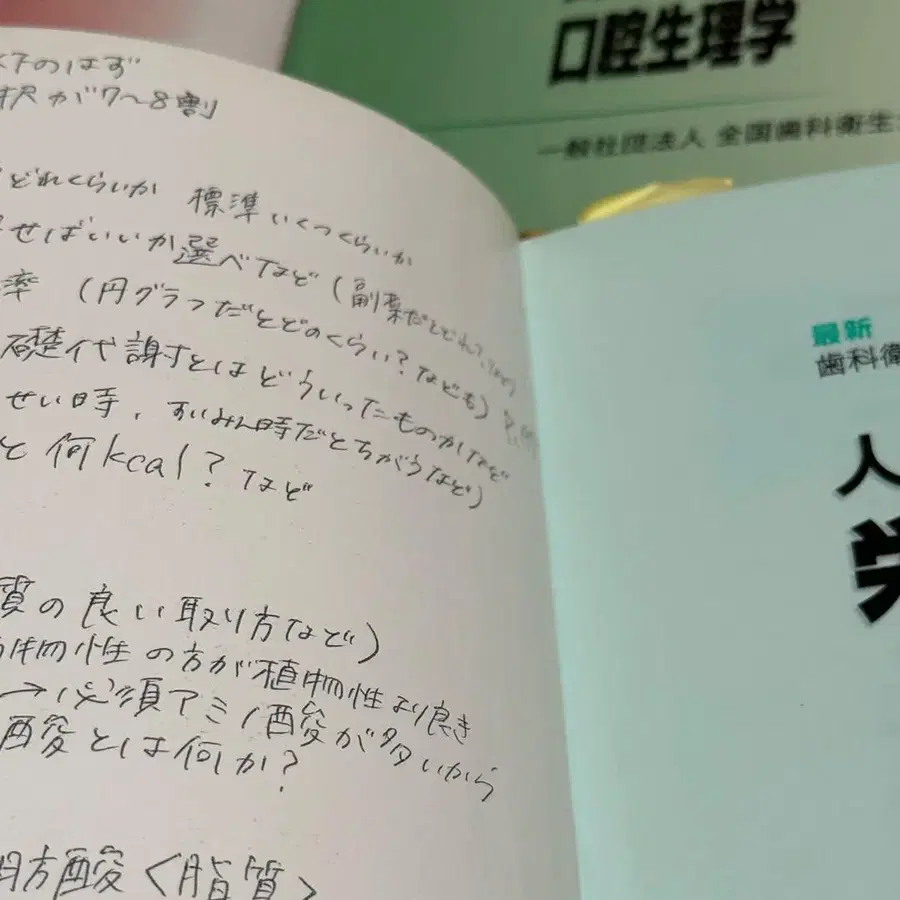 口腔生理学
一般社団法人 全国歯科衛生
下のはず
択が7〜8割
どれくらいか 標準いくつくらいか
せばいいか選べなど(副菜だとどれ?など)
率 (円グラフだとどのくらい?なども)
礎代謝とはどういったものかなど
せい時、すいみん時だとちがうなど)
と何kcal?など
質の良い取り方など)
動物性の方が植物性より良き
→必須アミノ酸が多いから
酸とは何か?
肪酸<脂質>
最新
歯科衛
人
学